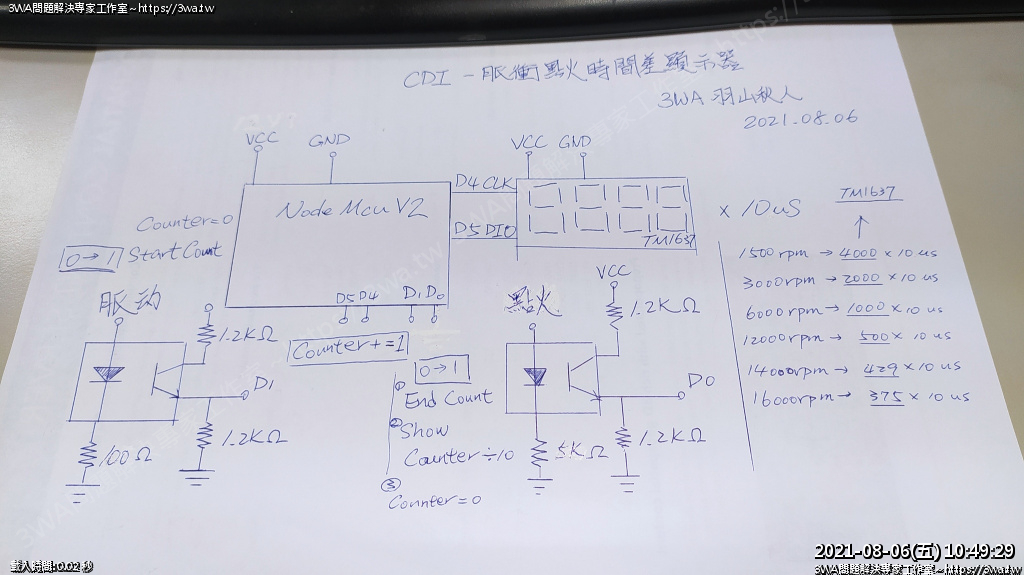 3WA問題解決專家工作室~https://3wa.tw
CDI - 脈衝點火時間差顯示器
3WA 羽山秋人
2021.08.06
VCC GND
VCC GND
Node Mcu V2
D4 CLK
D5 DIO
TM1637
× 10us
TM1637
Counter=0
0→1 Start Count
D5 D4 D1 D0
Counter+=1
脈动
1.2KΩ
D1
100Ω
1.2KΩ
0→1
① End Count
② Show
Counter÷10
③
Counter=0
點火
VCC
1.2KΩ
D0
5KΩ
1.2KΩ
1500rpm → 4000 × 10 us
3000rpm → 2000 × 10 us
6000rpm → 1000 × 10 us
12000rpm → 500 × 10 us
14000rpm → 429 × 10 us
16000rpm → 375 × 10 us
載入時間:0.02 秒
2021-08-06(五) 10:49:29
3WA問題解決專家工作室~https://3wa.tw